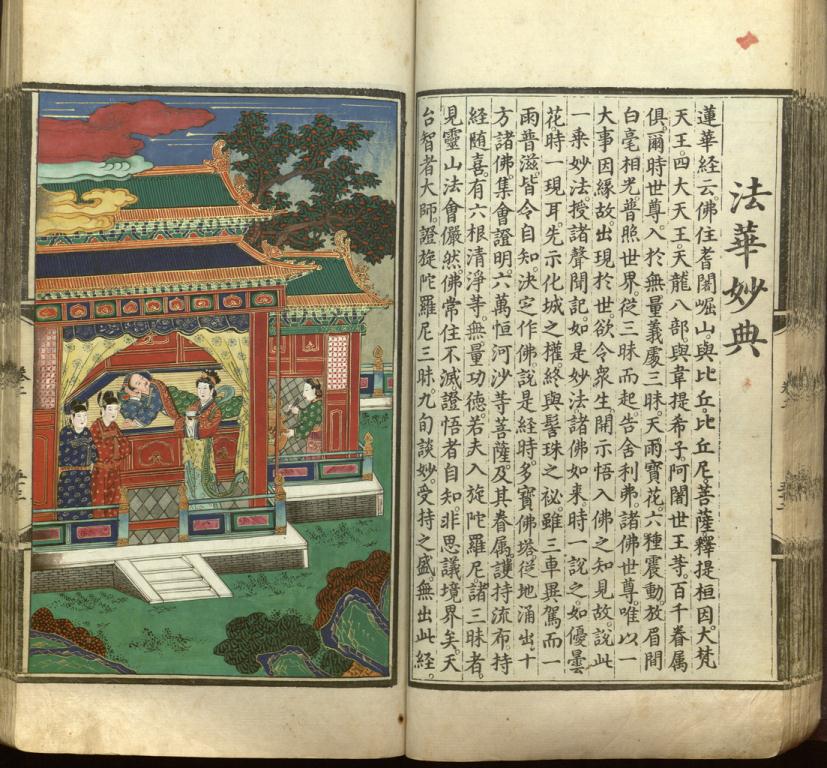 法華妙典
蓮華經云。佛住耆闍崛山。與比丘。比丘尼。菩薩。釋提桓因。大梵
天王。四大天王。天龍八部。與韋提希子。阿闍世王等。百千眷属
俱。爾時世尊。入於無量義處三昧。天雨寶花。六種震動。放眉間
白毫相光。普照世界。從三昧而起。告舍利弗。諸佛世尊。唯以一
大事因緣故。出現於世。欲令衆生。開示悟入佛之知見故。說此
一乘妙法。授諸聲聞記。如是妙法。諸佛如来。時一說之。如優曇
花。時一現耳。先示化城之權。終與髻珠之祕。雖三車異駕。而一
雨普滋。皆令自知。決定作佛。說是經時。多寶佛塔。從地涌出。十
方諸佛。集會證明。六萬恒河沙等菩薩。及其眷属。護持流布。持
經随喜。有六根清淨等。無量功德。若夫入旋陀羅尼。諸三昧者。
見靈山法會儼然。佛常住不滅。證悟者自知。非思議境界矣。天
台智者大師。證旋陀羅尼三昧。九旬談妙。受持之盛。無出此經。